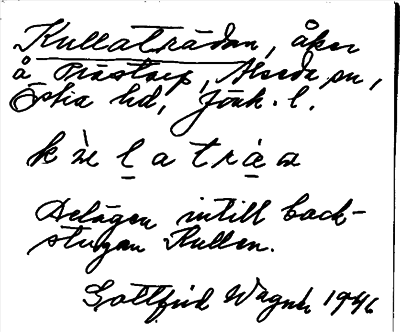 Kullaträdan, åker
å Prästorp, Alseda sn,
Östra hd, Jönk. l.
k u̇ l a t r å n
Belägen intill back-
stugan Kullen.
Gottfrid Wagnér 1946